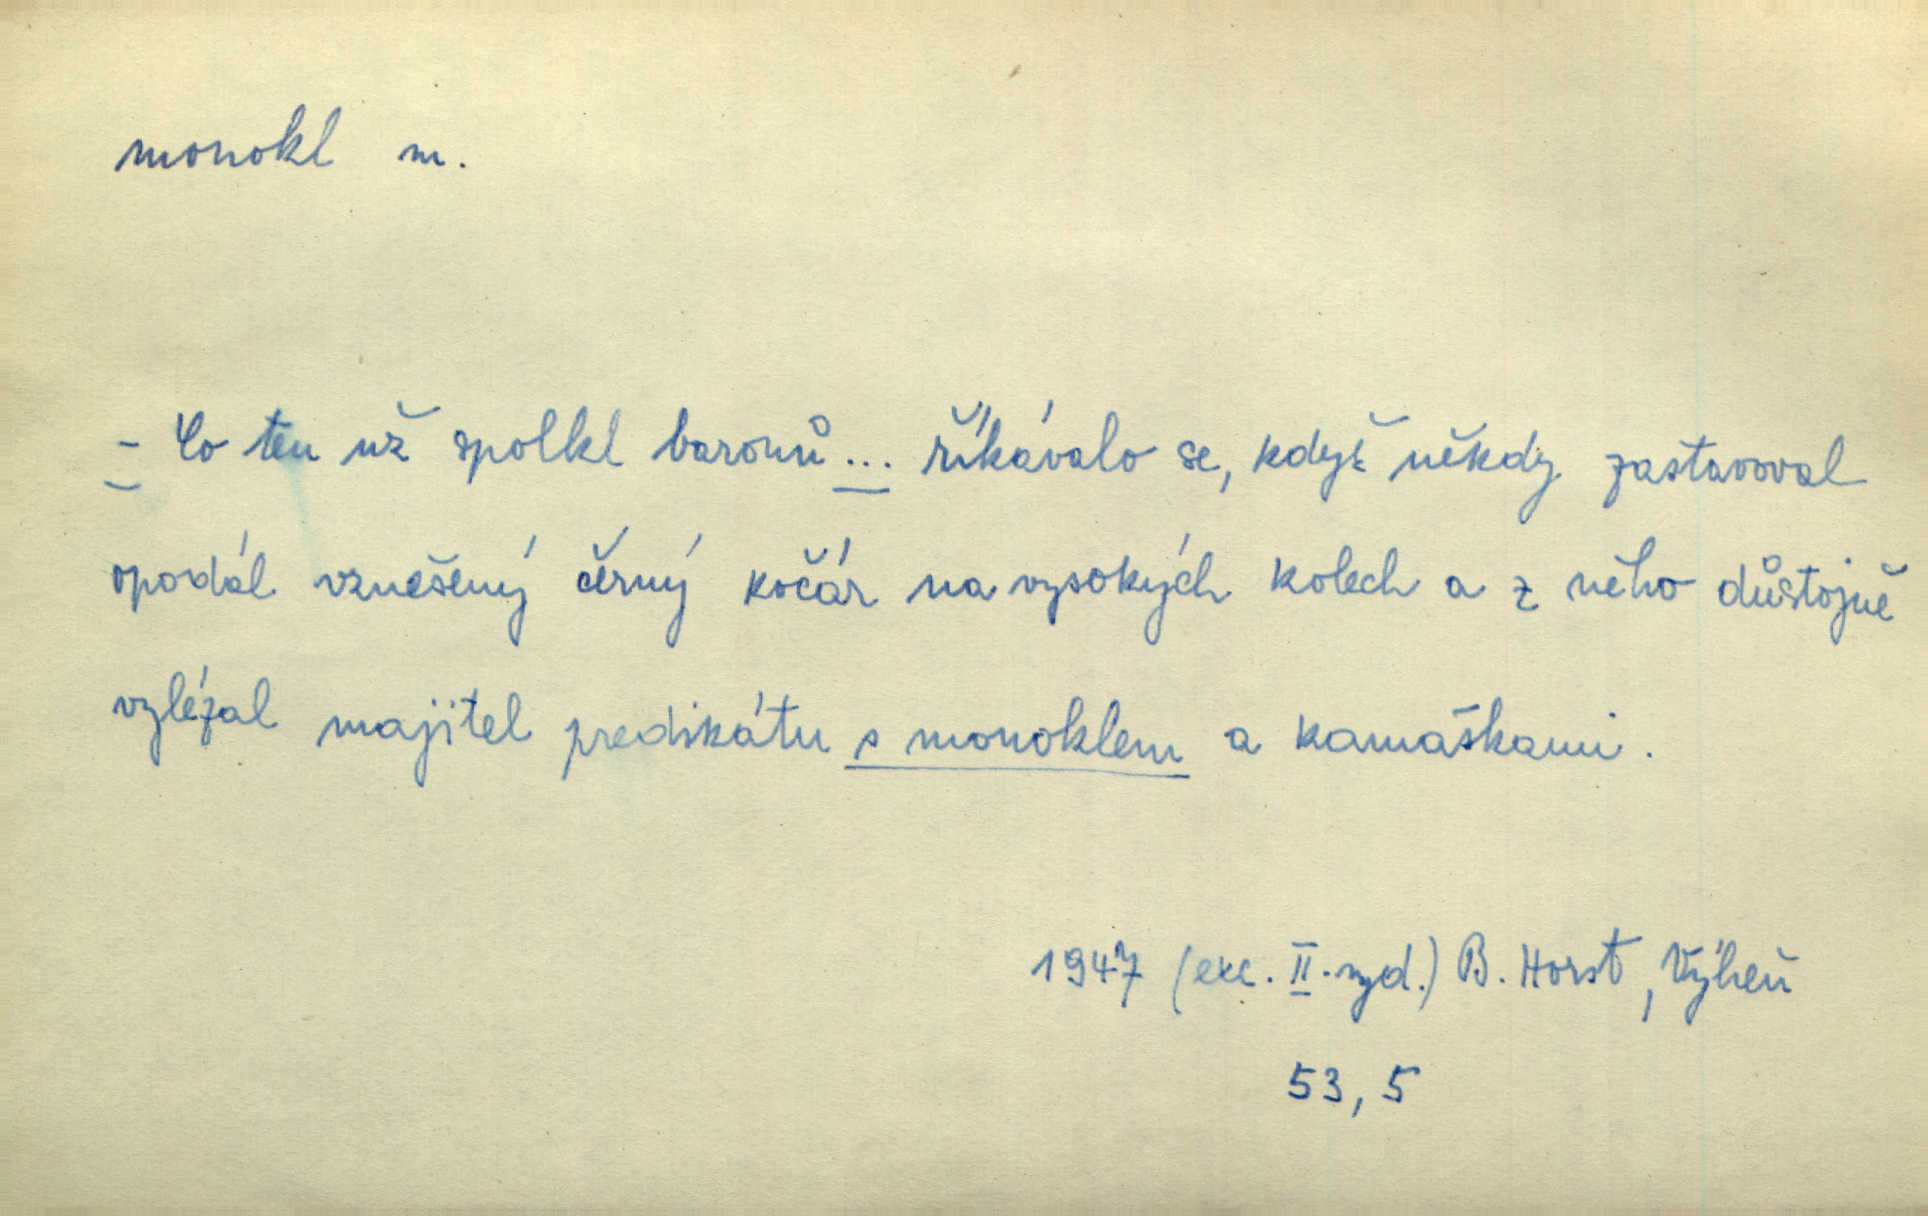 monokl m.
- Co ten už spolkl baronů... říkávalo se, když někdy zastavoval
opodál vznešený černý kočár na vysokých kolech a z něho důstojně
vylézal majitel predikátu s monoklem a kamaškami.
1947 (exc. II. vyd.) B. Horst, Výheň
53,5